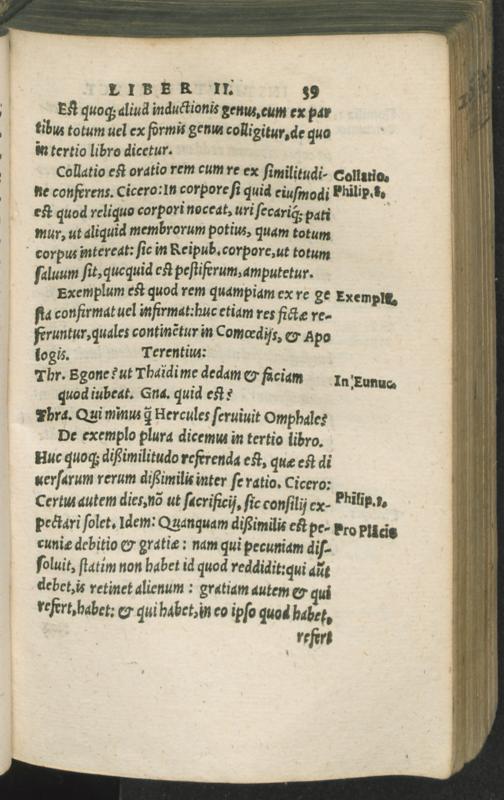 LIBER II. 59
Est quoq; aliud inductionis genus, cum ex par
tibus totum uel ex formis genus colligitur, de quo
in tertio libro dicetur.
Collatio est oratio rem cum re ex similitudi-
ne conferens. Cicero: In corpore si quid eiusmodi
est quod reliquo corpori noceat, uri secariq́; pati
mur, ut aliquid membrorum potius, quam totum
corpus intereat: sic in Reipub. corpore, ut totum
saluum sit, quęquid est pestiferum, amputetur.
Exemplum est quod rem quampiam ex re ge
sta confirmat uel infirmat: huc etiam res fictæ re-
feruntur, quales continētur in Comœdijs, & Apo
logis. Terentius:
Thr. Egone? ut Thaïdi me dedam & faciam
quod iubeat. Gna. quid est?
Thra. Qui minus q̃ Hercules seruiuit Omphale?
De exemplo plura dicemus in tertio libro.
Huc quoq; dißimilitudo referenda est, quæ est di
uersarum rerum dißimilis inter se ratio. Cicero:
Certus autem dies, nō ut sacrificij, sic consilij ex-
pectari solet. Idem: Quanquam dißimilis est pe-
cuniæ debitio & gratiæ: nam qui pecuniam dis-
soluit, statim non habet id quod reddidit: qui aūt
debet, is retinet alienum: gratiam autem & qui
refert, habet: & qui habet, in eo ipso quod habet,
refert
Collatio.
Philip. 8.
Exemplū.
In Eunuc.
Philip. 1.
Pro Plācio